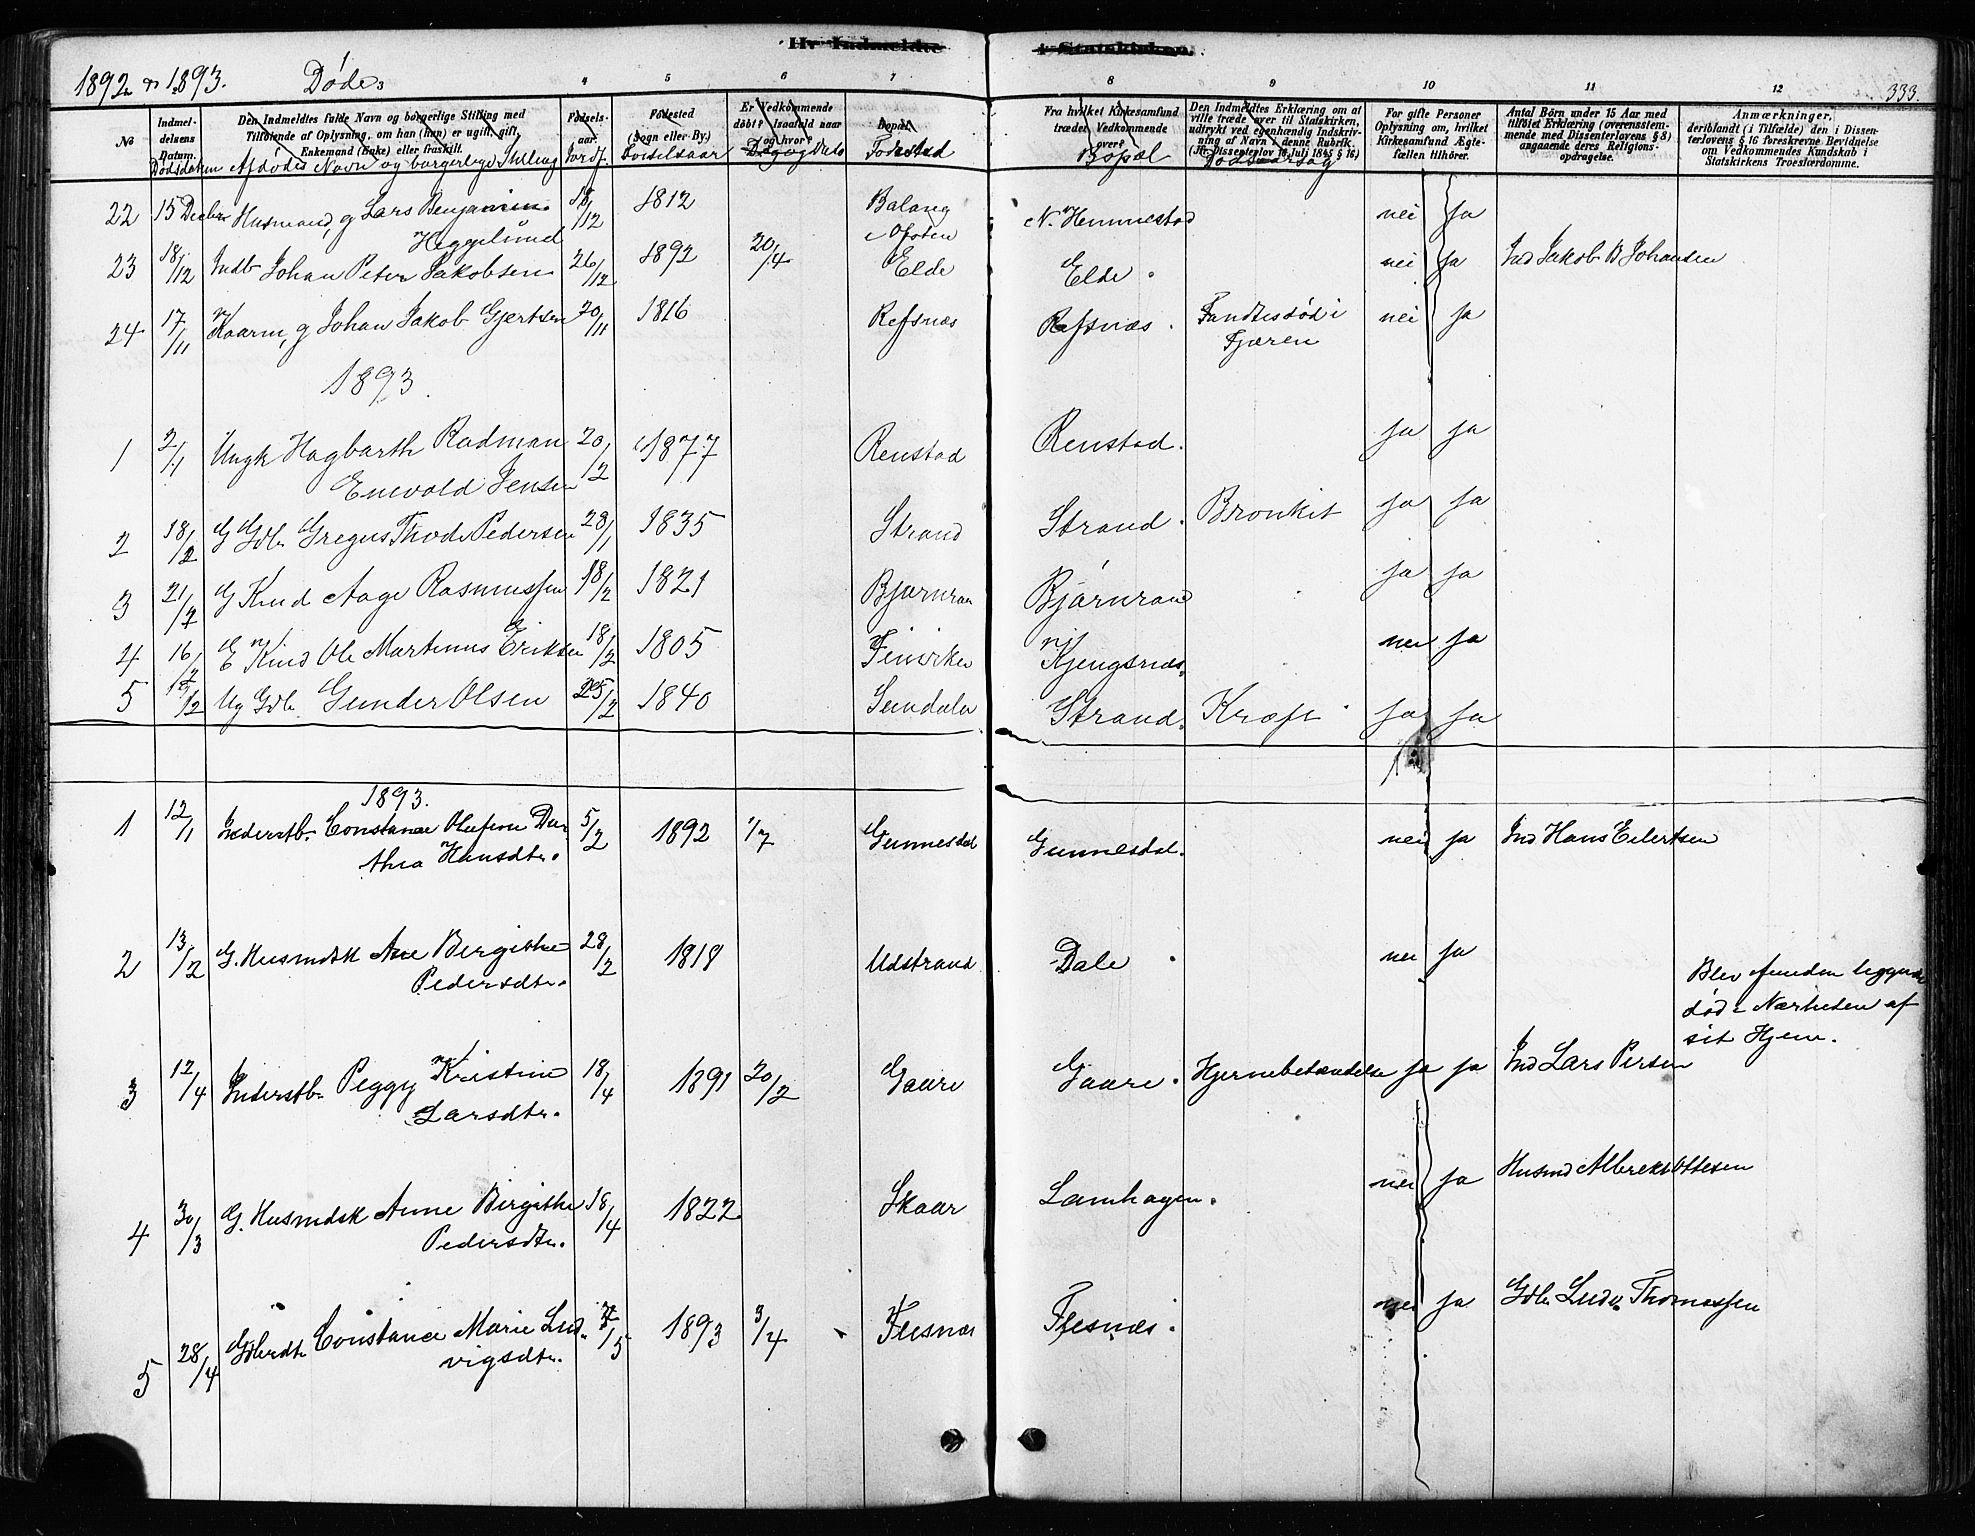 IIv Indmeldte i Statskirken.
1892 & 1893. Døde. 333.
4 5 6 7 8 9 10 11 12
No
Indmeldelsens Datum.
Den Indmeldtes fulde Navn og borgerlige Stilling med Tilføiende af Oplysning, om han (hun) er ugift, gift, Enkemand (Enke) eller fraskilt.
Fødselsaar
Fødested (Sogn eller By.)
Er Vedkommende døbt? Isaafald naar og hvor?
Bopæl
Fra hvilket Kirkesamfund træder Vedkommende over?
Den Indmeldtes Erklæring om at ville træde over til Statskirken, udtrykt ved egenhændig Indskrivning af Navn i denne Rubrik. (Jfr. Dissenterlov 16 Juli 1845 § 16.)
For gifte Personer Oplysning om, hvilket Kirkesamfund Ægtefællen tilhører.
Antal Børn under 15 Aar med tilføiet Erklæring (overensstemmende med Dissenterlovens § 8) angaaende deres Religionsopdragelse.
Anmærkninger, deriblandt (i Tilfælde) den i Dissenterlovens § 16 foreskrevne Bevidnelse om Vedkommendes Kundskab i Statskirkens Troeslærdomme.
Dødsdatum Afdødes Navn og borgerlige Stilling Jordf. Fødselsaar Daab Dato Fødested Bopæl Dødsaarsag
22 15 Decbr Husmand, g Lars Benjamin 18/12 1812 Balang N. Hemmestad nei ja
Heggelund i Ofoten
23 18/12 Indb Johan Peter Jakobsen 26/12 1892 20/4 Elde Elde. nei ja Ind Jakob B Johansen
24 17/11 Kaarm, g Johan Jakob Gjertsen 20/11 1816 Refsnæs Refsnæs. Fandtes død i nei ja
Fjæren
1893.
1 2/1 Ungk Hagbarth Rodman 20/12 1877 Renstad Renstad. ja ja
Enevold Jensen
2 18/2 G Gdb. Gregus Thode Pedersen 28/1 1835 Strand Strand. Bronkit ja ja
3 21/2 G Kmd Aage Rasmussen 18/2 1821 Bjørnraa Bjørnraa ja ja
4 16/2 E Kmd Ole Martinus Eriksen 18/2 1805 Kjengsnæs. nei ja
5 Ug Gdb. Gunder Olsen 25/2 1840 Strand. Kræft. ja ja
1893.
1 12/1 Inderstb. Constance Olufine Dor 5/2 1892 1/7 Gunnesdal Gunnesdal. nei ja Ind Hans Eilertsen
thea Hansdtr.
2 13/2 G. Husmdsk Ane Bergithe 28/2 1818 Udstrand Dale. nei ja
Pedersdtr.
Blev funden liggende
død i Nærheden af
sit Hjem.
3 12/4 Inderstb. Peggy Kristine 18/4 1891 20/2 Gaare Gaare. Hjernebetændelse ja ja Ind Lars Persen
Larsdtr.
4 30/3 G. Husmdsk Anne Birgithe 18/4 1822 Skaar Lamhagen. nei ja Husmd Albrekt Ottesen
Pedersdtr.
5 28/4 Gdbrdt. Constance Marie Lud /5 1893 3/4 Flesnæs Flesnæs. nei ja Gdb Ludv Thomassen
vigsdtr.